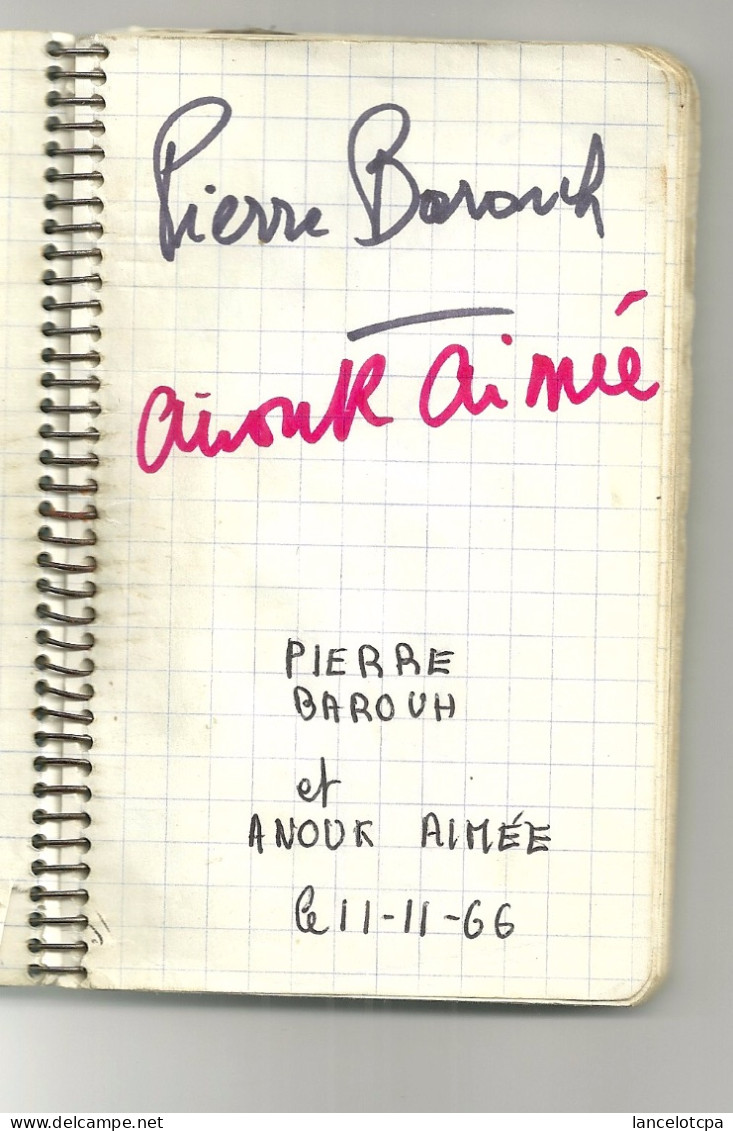 Pierre Barouh
Anouk Aimée
PIERRE
BAROUH
et
ANOUK AIMÉE
le 11-11-66
lancelotcpa